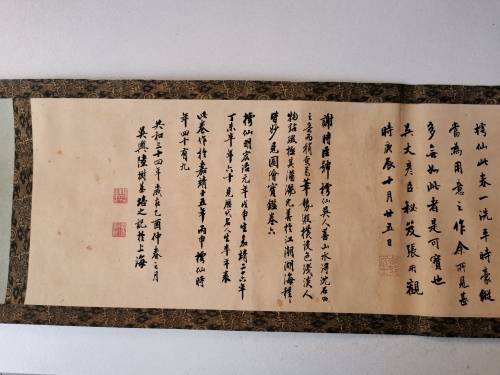 樗仙此卷一洗平時豪縱
當為用意之作余所見甚
多無如此者是可寶也
吳大彥臣秘笈張珩觀
時庚辰十月廿五日
謝時臣號樗仙吳人善山水得沈石田
之意而稍變多筆勢縱橫設色淺淡人
物點綴極其瀟灑尤善於江潮湖海種種
皆妙見圖繪寶鑑卷六
樗仙明宏治元年戊申生嘉靖二十六年
丁未卒年六十見歷代名人生卒年表
此卷作於嘉靖十五年丙申樗仙時
年四十有九
共和三十四年歲在乙酉仲春之月
吳興陸樹基培之記於上海